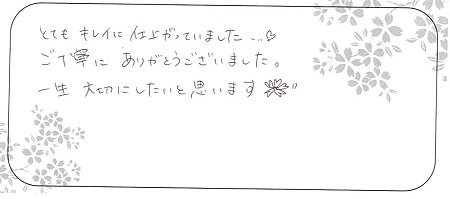 とても キレイに 仕上がっていました…♡
ご丁寧に ありがとうございました。
一生 大切にしたいと思います